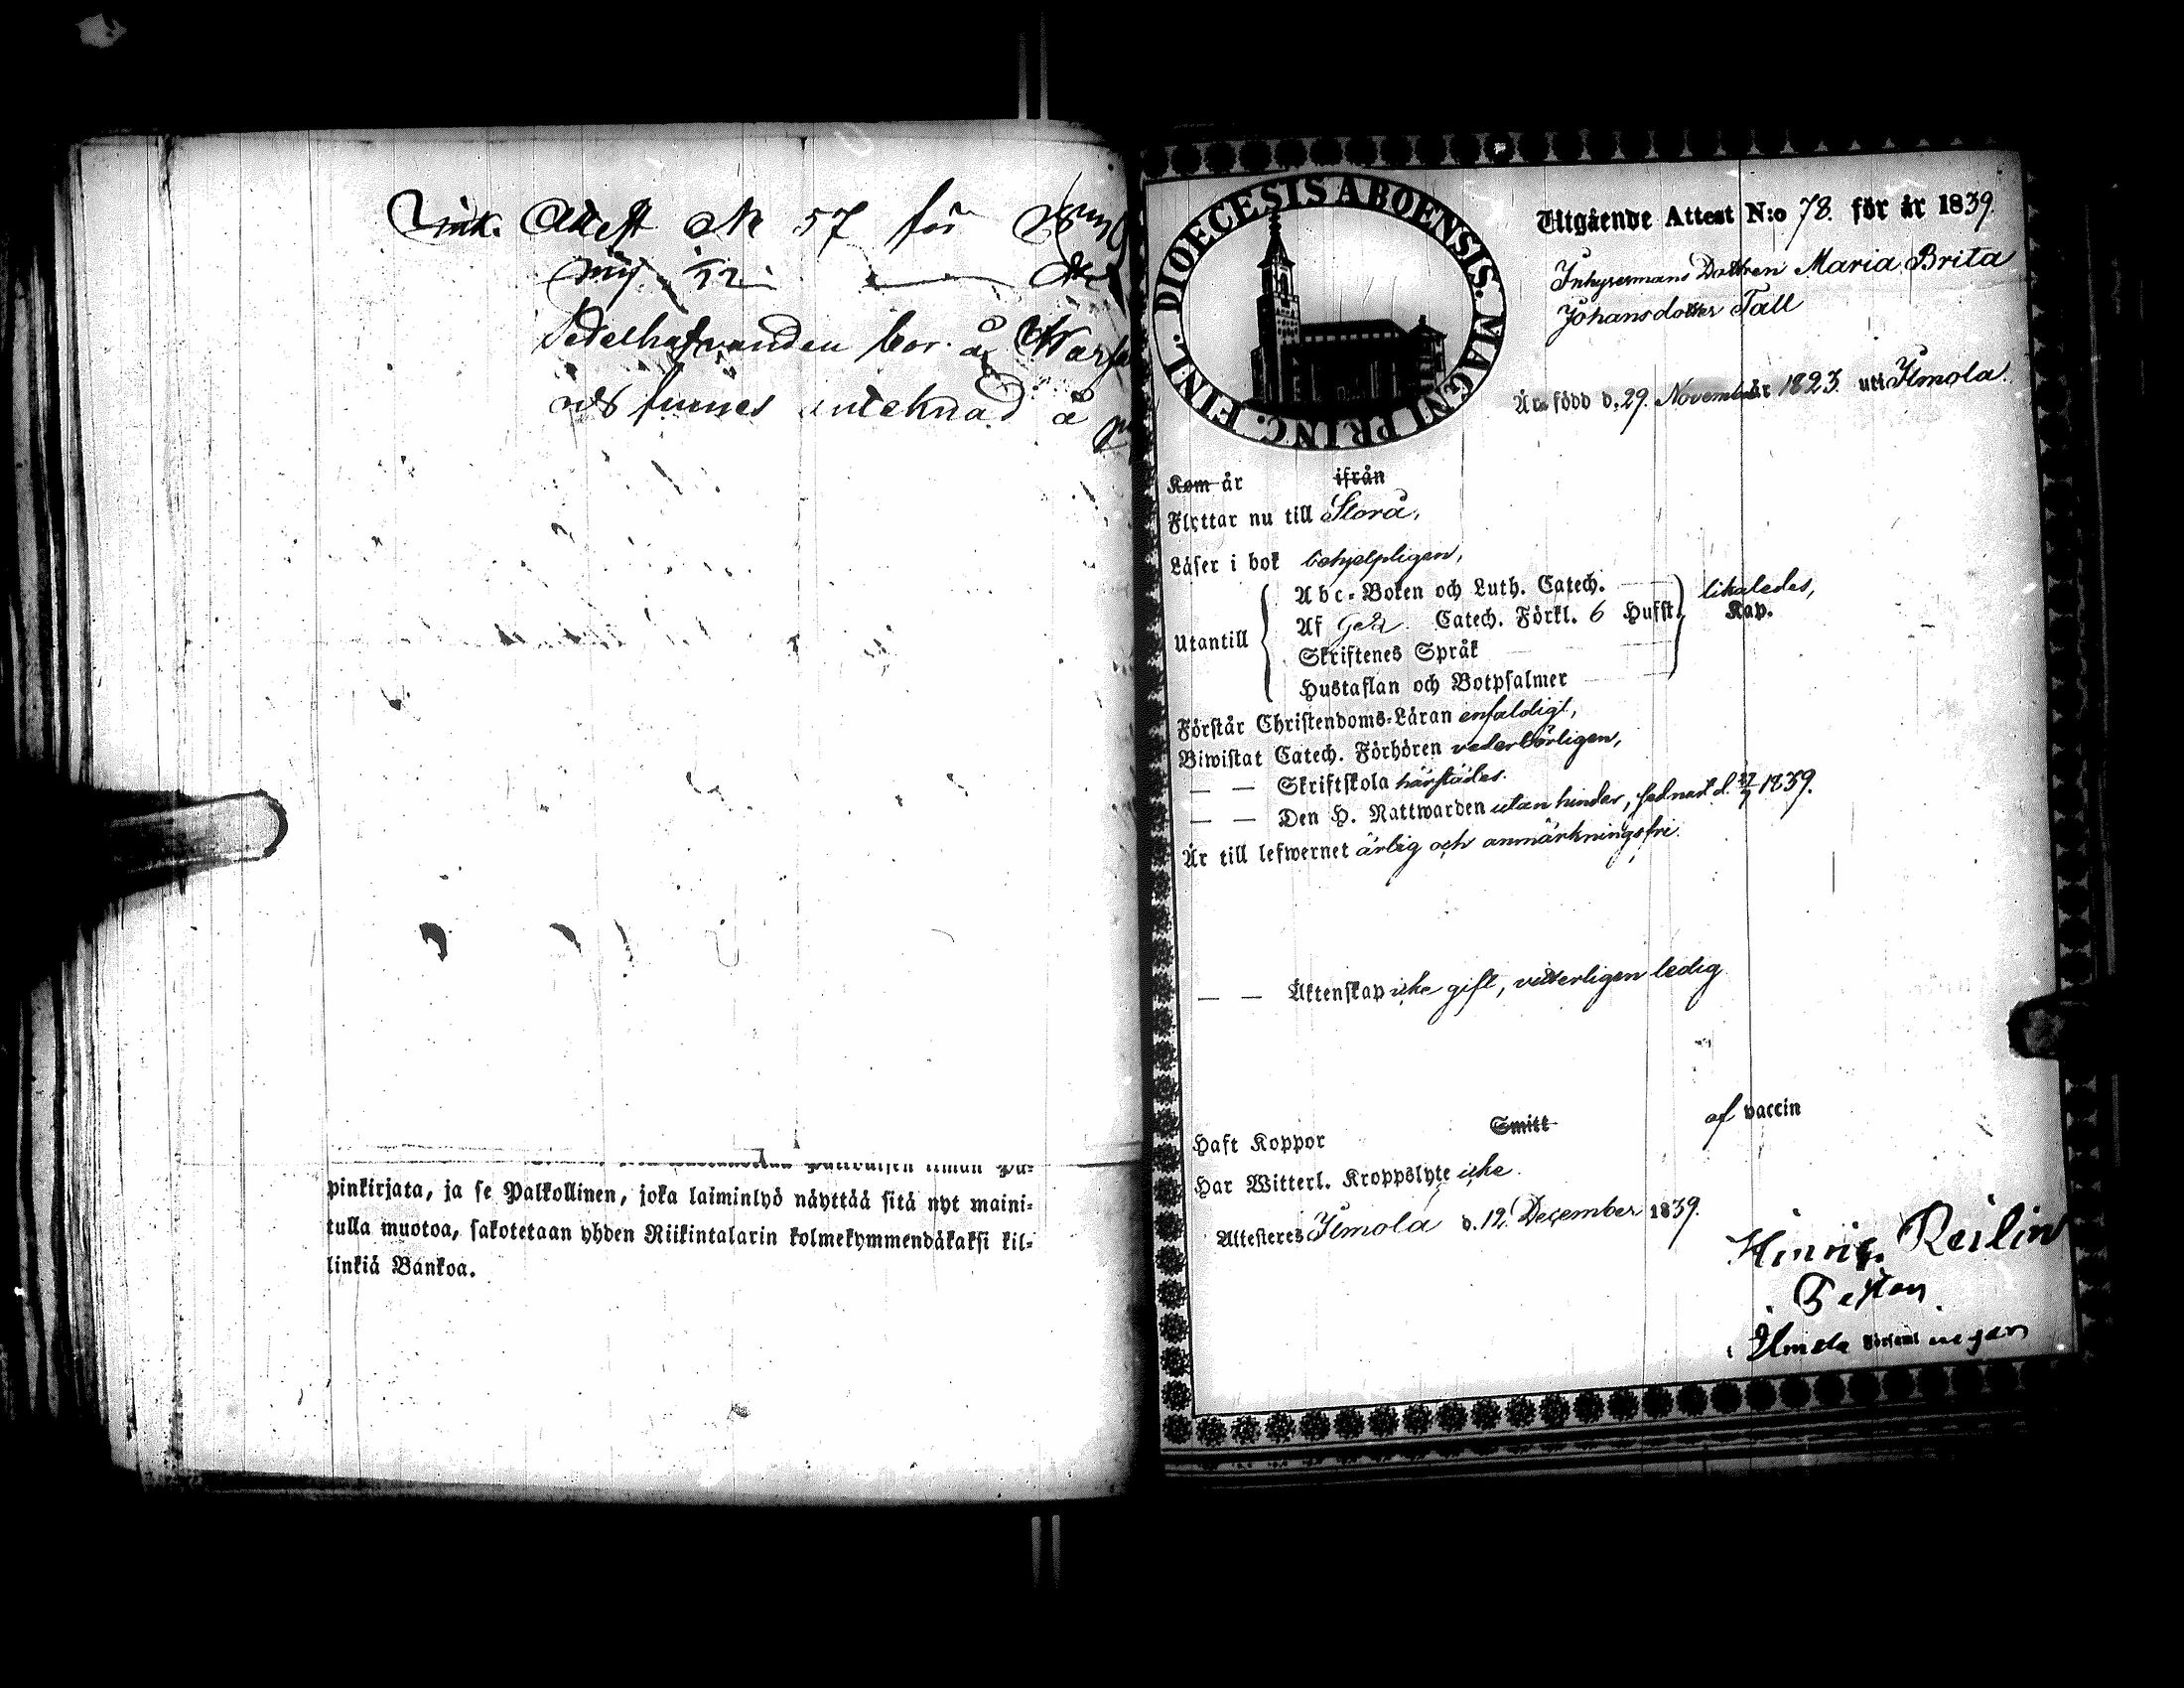 Ink. Attest № 57 för
Sedelhafvanden bor å
och finnes antecknad å
pinkirjata, ja se Palkollinen, joka laiminlyö näyttää sitä nyt maini-
tulla muotoa, sakotetaan yhden Riikintalarin kolmekymmendäkaksi kil-
linkiä Bankoa.
DIOECESIS ABOENSIS. MAGNI PRINC. FINL.
Utgående Attest N:o 78. för år 1839.
Inhysesmans Dottren Maria Brita
Johansdotter Tall
Är född d. 29. November 1823 uti Ilmola.
Kom år ifrån
Flyttar nu till Storå,
Läser i bok behjelpligen,
Utantill
Abc-Boken och Luth. Catech.
Af Catech. Förkl. 6 Hufst. Kap.
likaledes,
Skriftenes Språk
Hustaflan och Botpsalmer
Förstår Christendoms-Läran enfaldigt,
Biwistat Catech. Förhören vederbörligen,
— — Skriftskola härstädes.
— — Den H. Nattwarden utan hinder, sednast d. 27/7 1839.
Är till lefwernet ärlig och anmärkningsfri.
— — Äktenskap icke gift, vitterligen ledig
Haft Koppor Smitt af vaccin
Har Witterl. Kroppslyte icke.
Attesteras Ilmola d. 12. December 1839.
Henric. Reilin
Ilmola Församlingen